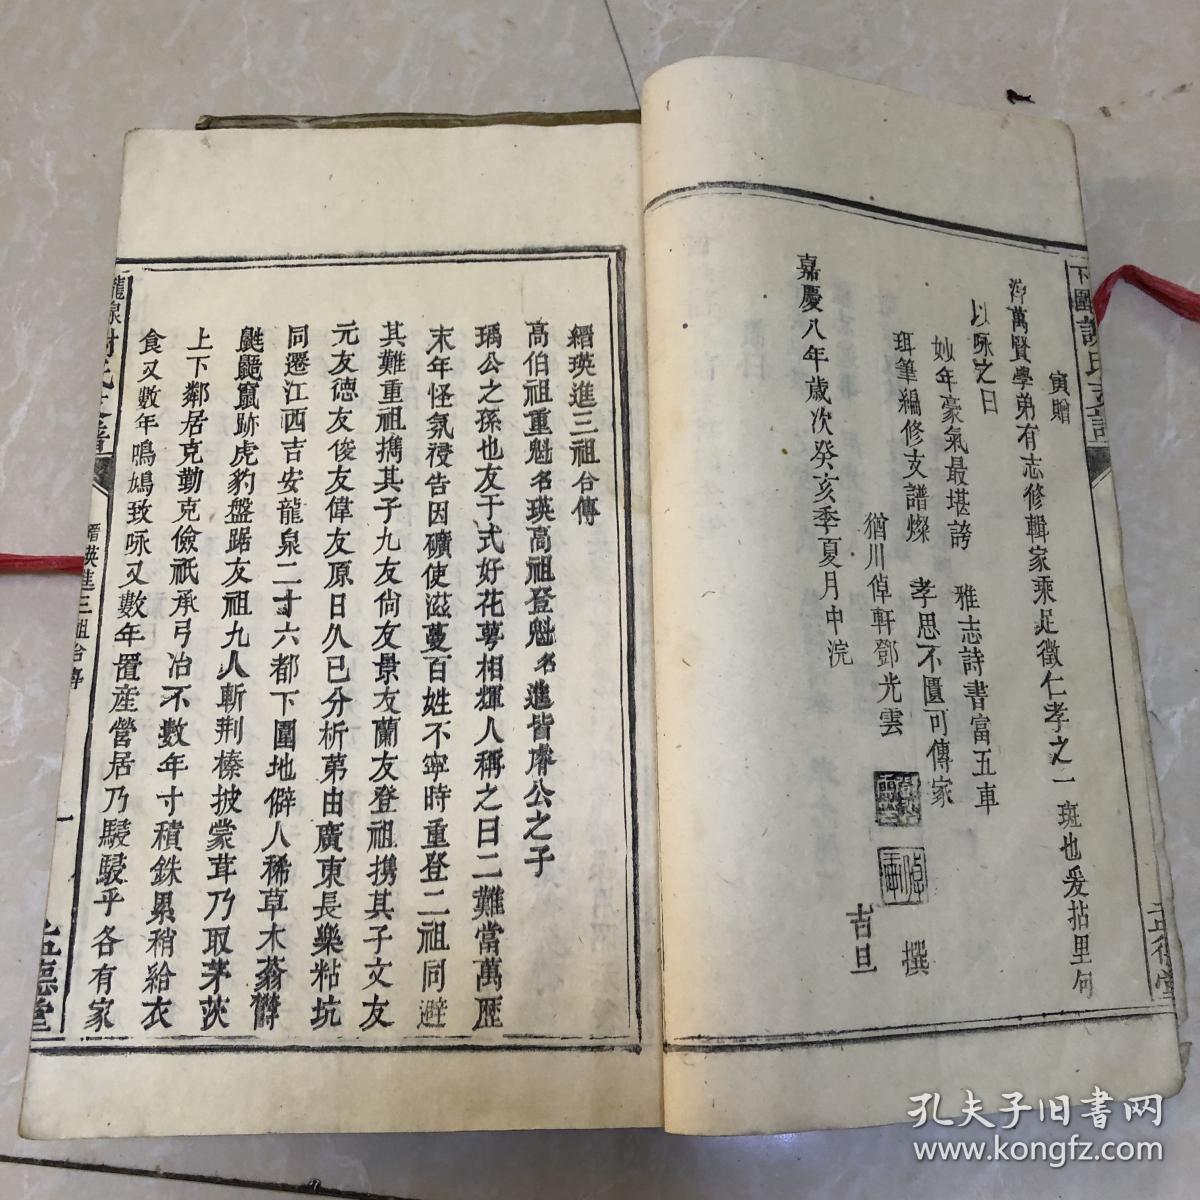 寅贈
萬賢學弟有志修輯家乘足徵仁孝之一班也爰拈里句
以咏之曰
妙年豪氣最堪誇　雅志詩書富五車
珥筆編修支譜燦　孝思不匱可傳家
猶川倬軒鄧光雲　撰
嘉慶八年歲次癸亥季夏月中浣　吉旦
縉瑛進三祖合傳
高伯祖重魁名瑛高祖登魁名進皆睿公之子
瑀公之孫也友于式好花萼相輝人稱之曰二難當萬歷
末年怪氛祲告因礦使滋蔓百姓不寧時重登二祖同避
其難重祖携其子九友尙友景友蘭友登祖携其子文友
元友德友俊友偉友原日久已分析第由廣東長樂粘坑
同遷江西吉安龍泉二十六都下圍地僻人稀草木蓊欝
鼪鼯竄跡虎豹盤踞友祖九人斬荆榛披蒙茸乃取茅茨
上下鄰居克勤克儉祇承弓冶不數年寸積銖累稍給衣
食又數年鳴鳩致咏又數年置産營居乃駸駸乎各有家
縉瑛進三祖合傳
一
孔夫子旧书网
www.kongfz.com